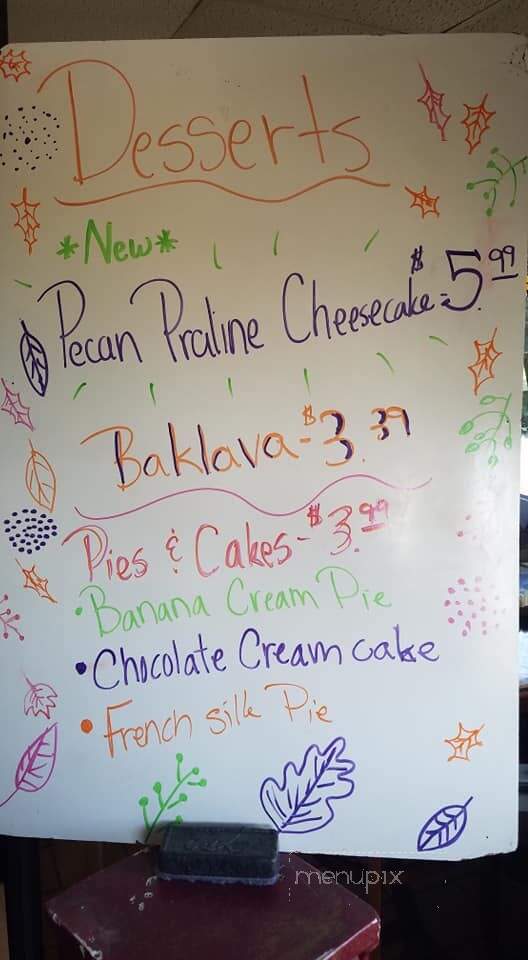 Desserts
*New*
Pecan Praline Cheesecake - $5.99
Baklava - $3.39
Pies & Cakes - $3.99
• Banana Cream Pie
• Chocolate Cream cake
• French silk Pie
menupix